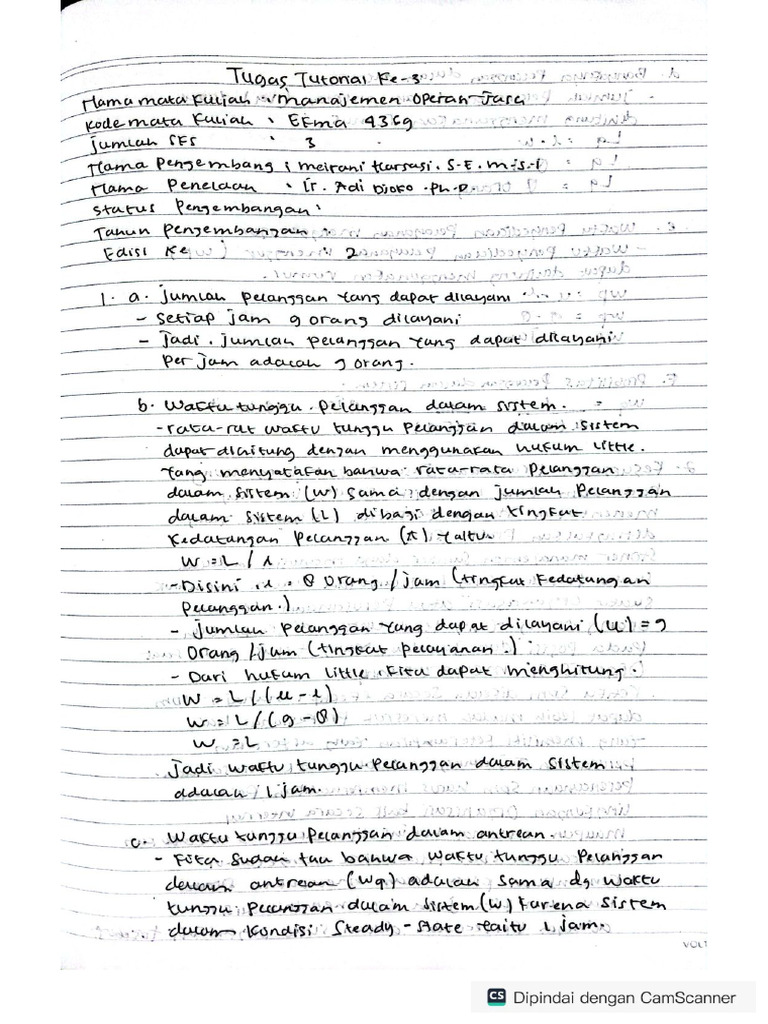 Tugas Tutorial Ke-3
Nama mata Kuliah : manajemen Operasi Jasa
Kode mata Kuliah : EKma 4369
Jumlah SKS : 3
Nama Pengembang : meirani Harsasi. S.E. m.s.i
Nama Penelaah : Ir. Adi Djoko .Ph.D
Status Pengembangan :
Tahun Pengembangan :
Edisi Ke : 2
1. a. Jumlah Pelanggan Yang dapat dilayani
- Setiap jam 9 orang dilayani
- Jadi. Jumlah Pelanggan Yang dapat dilayani
Per jam adalah 9 orang.
b. Waktu tunggu Pelanggan dalam sistem.
- rata-rat waktu tunggu Pelanggan dalam Sistem
dapat dihitung dengan menggunakan hukum Little.
Yang menyatakan bahwa rata-rata Pelanggan
dalam Sistem (W) Sama dengan jumlah Pelanggan
dalam Sistem (L) dibagi dengan tingkat
Kedatangan Pelanggan (λ) Yaitu
W = L / λ
- Disini λ = 8 Orang / jam (tingkat Kedatangan
Pelanggan.)
- Jumlah Pelanggan Yang dapat dilayani (u) = 9
Orang / jam (tingkat Pelayanan.)
- Dari hukum little Kita dapat menghitung.
W = L / (u - λ)
W = L / (9 - 8)
W = L
Jadi waktu tunggu Pelanggan dalam Sistem
adalah 1 jam.
c. Waktu tunggu Pelanggan dalam antrean.
- Kita Sudah tau bahwa waktu tunggu Pelanggan
dalam antrean (Wq) adalah Sama dg Waktu
tunggu Pelanggan dalam Sistem (W) Karena Sistem
dalam Kondisi Steady - State Yaitu 1 jam.
VOLT
CS Dipindai dengan CamScanner